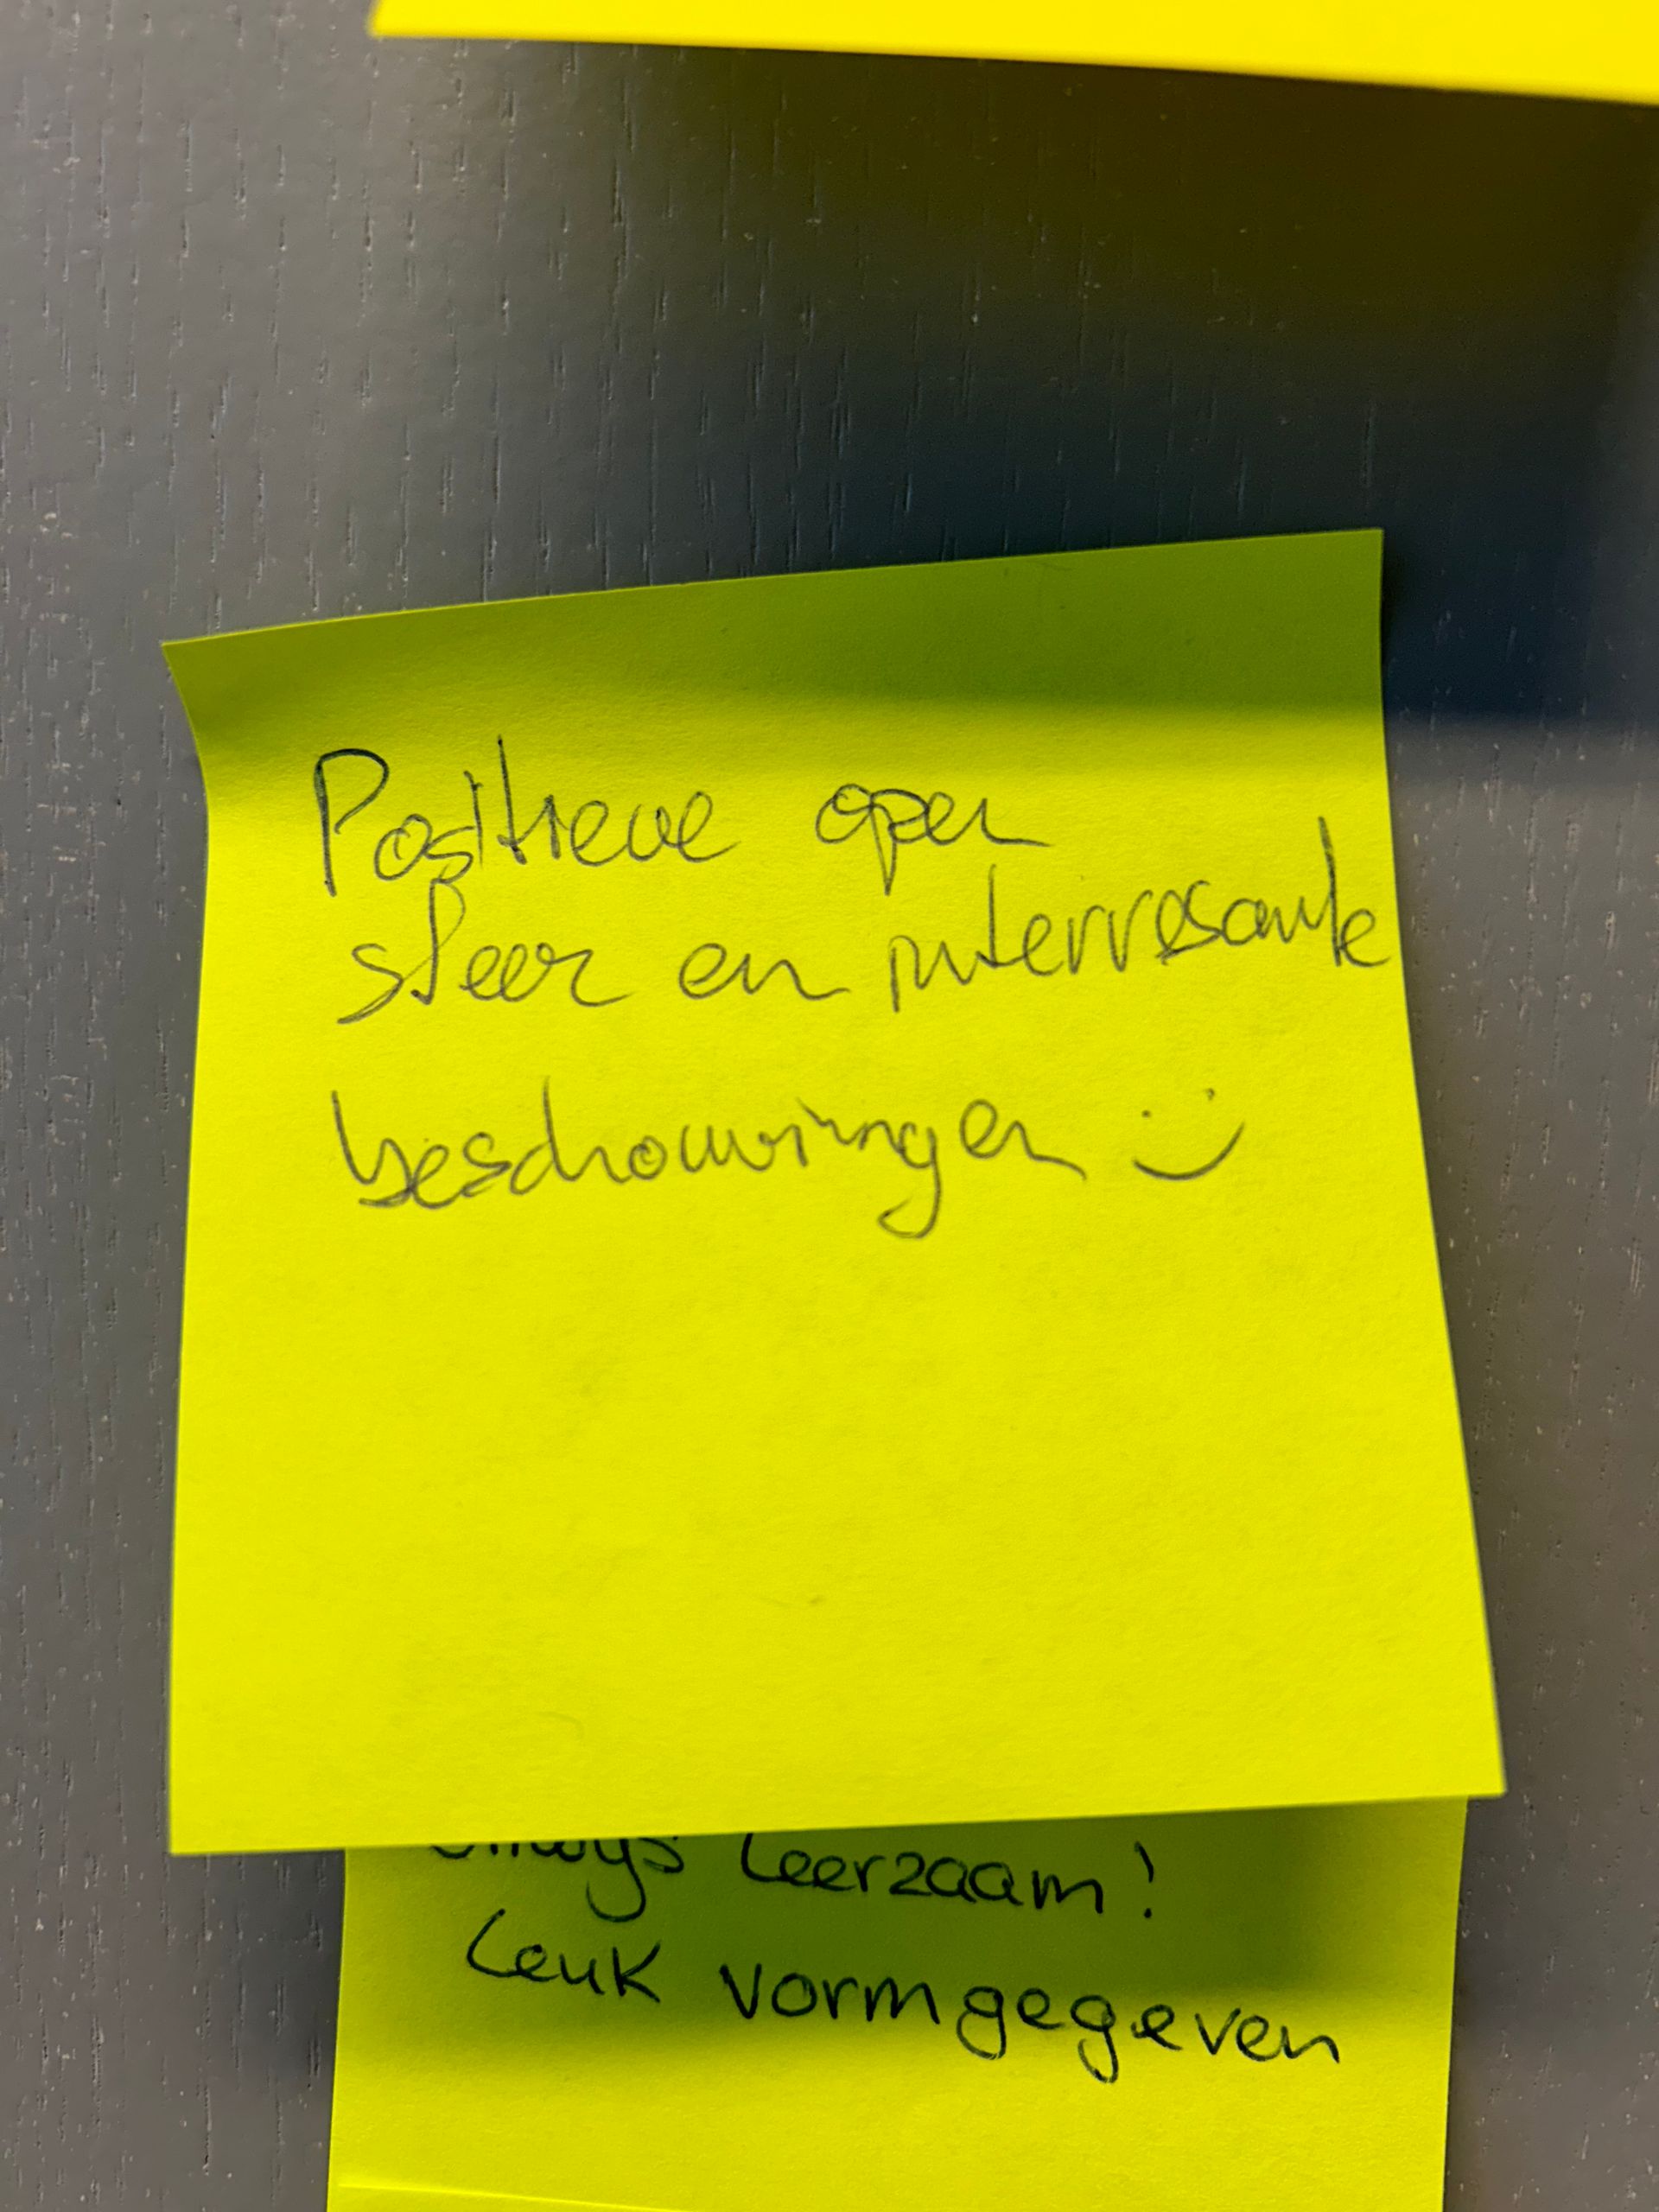 Positieve open
sfeer en interresante
beschouwingen :)
leerzaam!
Leuk vormgegeven